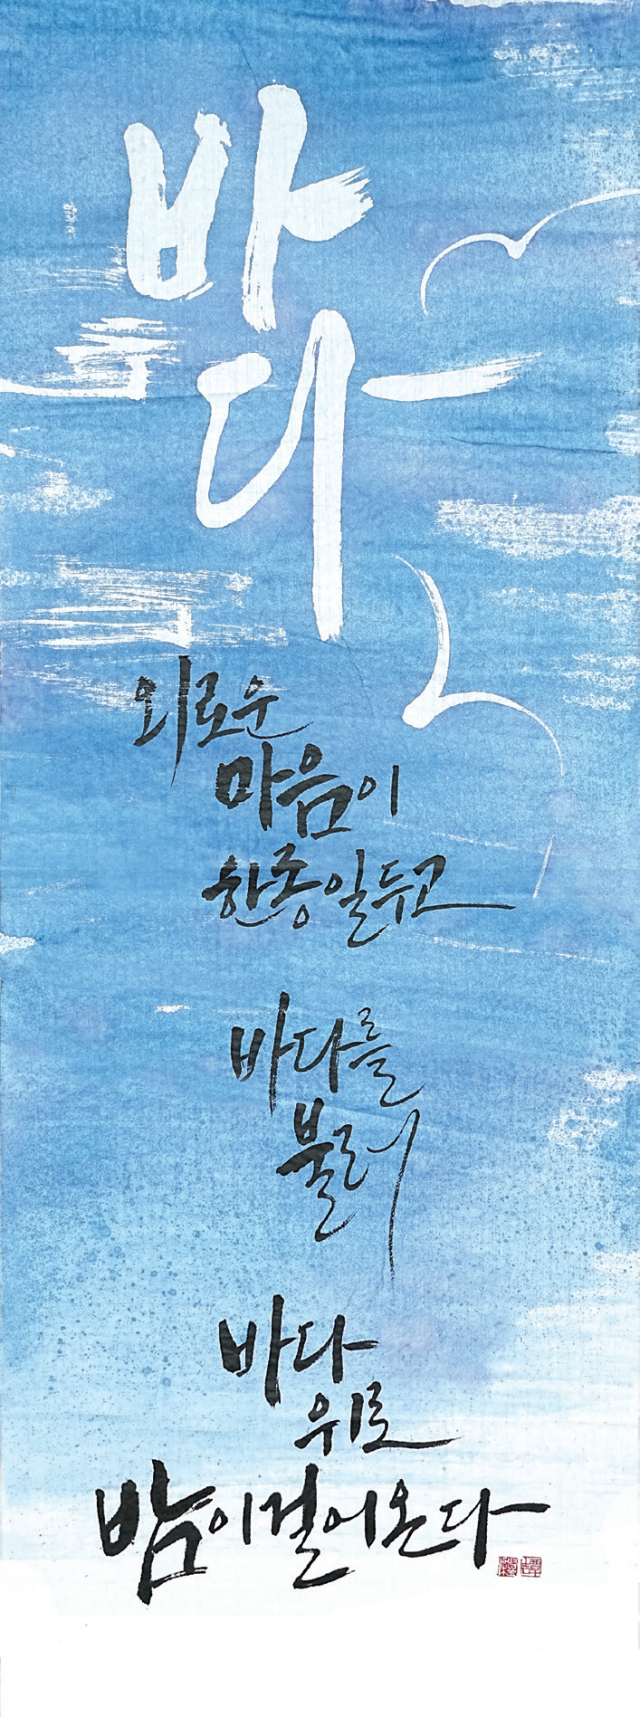 바
다
외로운
마음이
한종일두고
바다를
불러
바다
위로
밤이걸어온다